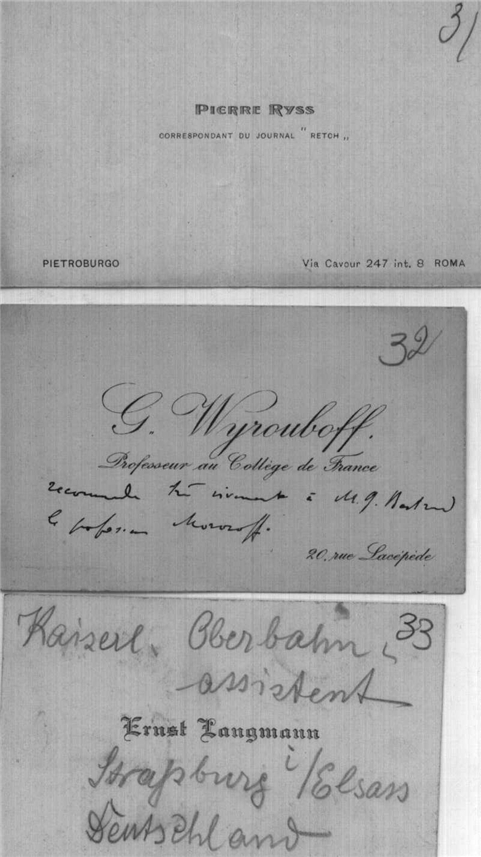 31
PIERRE RYSS
CORRESPONDANT DU JOURNAL "RETCH„
PIETROBURGO
Via Cavour 247 int. 8 ROMA
32
G. Wyrouboff.
Professeur au Collège de France
recommande très vivement à M. J.
le professeur Morozoff.
20, rue Lacépède
33
Kaiserl. Oberbahn-
assistent
Ernst Langmann
Straßburg i/Elsass
Deutschland